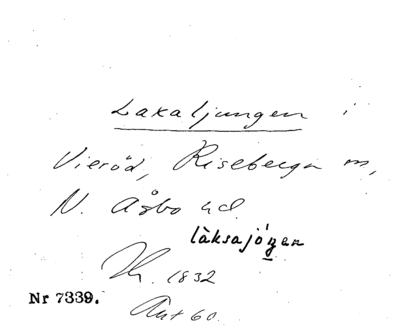 Laxaljungen i
Vieröd, Riseberga sn,
N. Åsbo hd.
làksajóŋen
Th. 1832
Nr 7339.
Ant 60